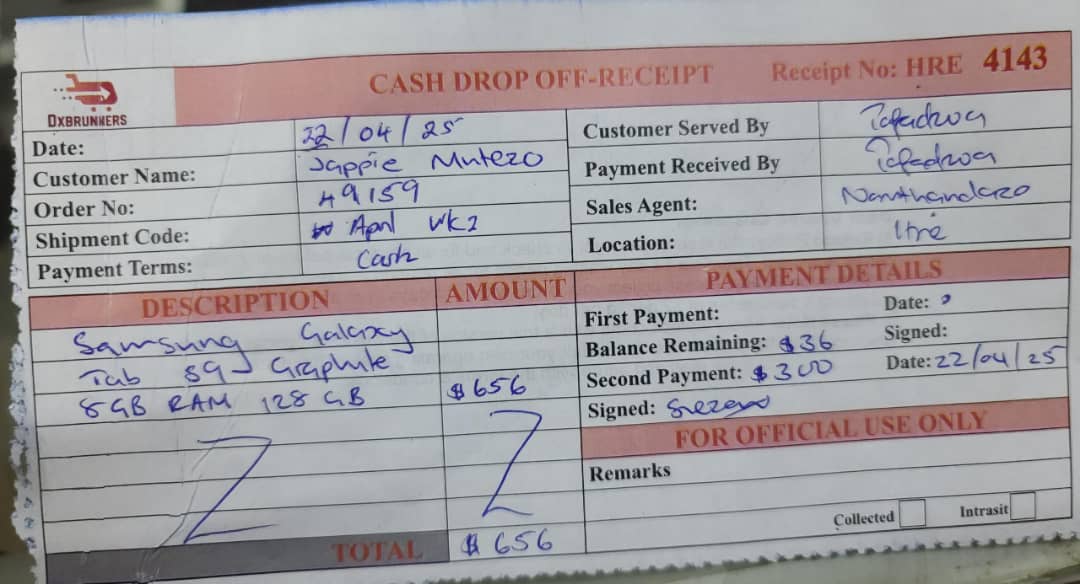 DXBRUNNERS
CASH DROP OFF-RECEIPT
Receipt No: HRE 4143
Date: 22/04/25
Customer Name: Jappie Mutezo
Order No: 49159
Shipment Code: April Wk2
Payment Terms: Cash
Customer Served By Tafadzwa
Payment Received By Tafadzwa
Sales Agent:
Location: Hre
DESCRIPTION AMOUNT
Samsung Galaxy
Tab S9 Graphite
8GB RAM 128 GB $656
TOTAL $656
PAYMENT DETAILS
First Payment: Date:
Balance Remaining: $36 Signed:
Second Payment: $300 Date: 22/04/25
Signed:
FOR OFFICIAL USE ONLY
Remarks
Collected Intrasit